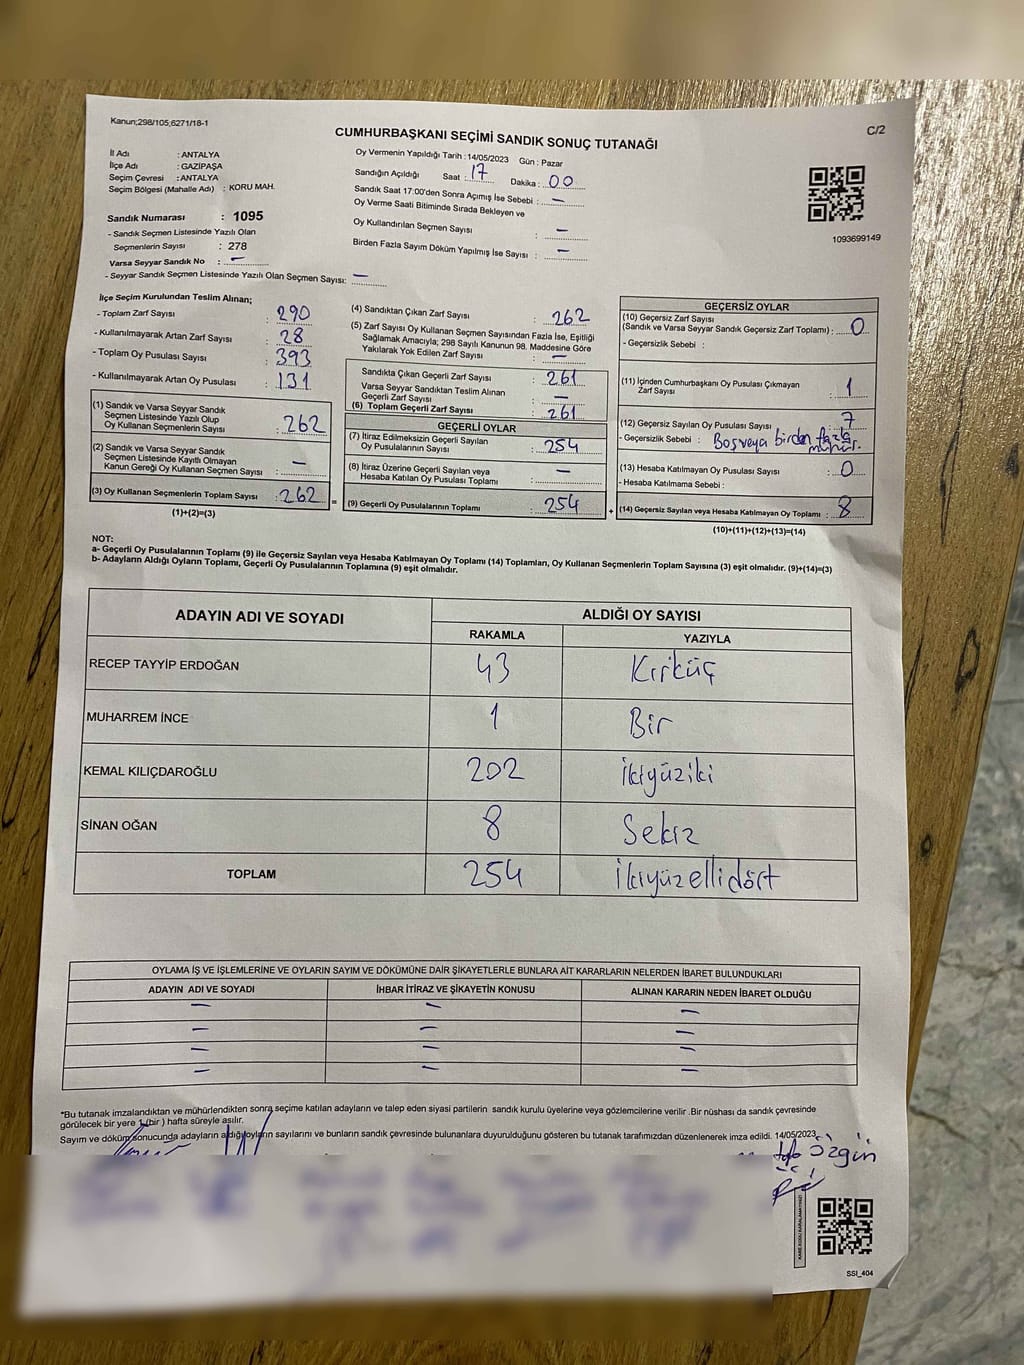 Kanun;298/105,6271/18-1
CUMHURBAŞKANI SEÇİMİ SANDIK SONUÇ TUTANAĞI
C/2
İl Adı : ANTALYA
İlçe Adı : GAZİPAŞA
Seçim Çevresi : ANTALYA
Seçim Bölgesi (Mahalle Adı) : KORU MAH.
Sandık Numarası : 1095
- Sandık Seçmen Listesinde Yazılı Olan
Seçmenlerin Sayısı : 278
Varsa Seyyar Sandık No : –
- Seyyar Sandık Seçmen Listesinde Yazılı Olan Seçmen Sayısı: –
Oy Vermenin Yapıldığı Tarih : 14/05/2023 Gün : Pazar
Sandığın Açıldığı Saat : 17 Dakika : 00
Sandık Saat 17:00'den Sonra Açımış İse Sebebi : –
Oy Verme Saati Bitiminde Sırada Bekleyen ve
Oy Kullandırılan Seçmen Sayısı : –
Birden Fazla Sayım Döküm Yapılmış İse Sayısı : –
1093699149
İlçe Seçim Kurulundan Teslim Alınan;
- Toplam Zarf Sayısı : 290
- Kullanılmayarak Artan Zarf Sayısı : 28
- Toplam Oy Pusulası Sayısı : 393
- Kullanılmayarak Artan Oy Pusulası : 131
(1) Sandık ve Varsa Seyyar Sandık
Seçmen Listesinde Yazılı Olup
Oy Kullanan Seçmenlerin Sayısı : 262
(2) Sandık ve Varsa Seyyar Sandık
Seçmen Listesinde Kayıtlı Olmayan
Kanun Gereği Oy Kullanan Seçmen Sayısı : –
(3) Oy Kullanan Seçmenlerin Toplam Sayısı : 262 =
(1)+(2)=(3)
(4) Sandıktan Çıkan Zarf Sayısı : 262
(5) Zarf Sayısı Oy Kullanan Seçmen Sayısından Fazla İse, Eşitliği
Sağlamak Amacıyla; 298 Sayılı Kanunun 98. Maddesine Göre
Yakılarak Yok Edilen Zarf Sayısı : –
Sandıkta Çıkan Geçerli Zarf Sayısı : 261
Varsa Seyyar Sandıktan Teslim Alınan
Geçerli Zarf Sayısı : –
(6) Toplam Geçerli Zarf Sayısı : 261
GEÇERLİ OYLAR
(7) İtiraz Edilmeksizin Geçerli Sayılan
Oy Pusulalarının Sayısı : 254
(8) İtiraz Üzerine Geçerli Sayılan veya
Hesaba Katılan Oy Pusulası Toplamı : –
(9) Geçerli Oy Pusulalarının Toplamı : 254 +
GEÇERSİZ OYLAR
(10) Geçersiz Zarf Sayısı
(Sandık ve Varsa Seyyar Sandık Geçersiz Zarf Toplamı) : 0
- Geçersizlik Sebebi :
(11) İçinden Cumhurbaşkanı Oy Pusulası Çıkmayan
Zarf Sayısı : 1
(12) Geçersiz Sayılan Oy Pusulası Sayısı : 7
- Geçersizlik Sebebi : Boş veya birden fazla
mühür.
(13) Hesaba Katılmayan Oy Pusulası Sayısı : 0
- Hesaba Katılmama Sebebi :
(14) Geçersiz Sayılan veya Hesaba Katılmayan Oy Toplamı : 8
(10)+(11)+(12)+(13)=(14)
NOT:
a- Geçerli Oy Pusulalarının Toplamı (9) ile Geçersiz Sayılan veya Hesaba Katılmayan Oy Toplamı (14) Toplamları, Oy Kullanan Seçmenlerin Toplam Sayısına (3) eşit olmalıdır. (9)+(14)=(3)
b- Adayların Aldığı Oyların Toplamı, Geçerli Oy Pusulalarının Toplamına (9) eşit olmalıdır.
ADAYIN ADI VE SOYADI ALDIĞI OY SAYISI
RAKAMLA YAZIYLA
RECEP TAYYİP ERDOĞAN 43 Kırküç
MUHARREM İNCE 1 Bir
KEMAL KILIÇDAROĞLU 202 İkiyüziki
SİNAN OĞAN 8 Sekiz
TOPLAM 254 İkiyüzellidört
OYLAMA İŞ VE İŞLEMLERİNE VE OYLARIN SAYIM VE DÖKÜMÜNE DAİR ŞİKAYETLERLE BUNLARA AİT KARARLARIN NELERDEN İBARET BULUNDUKLARI
ADAYIN ADI VE SOYADI İHBAR İTİRAZ VE ŞİKAYETİN KONUSU ALINAN KARARIN NEDEN İBARET OLDUĞU
– – –
– – –
– – –
– – –
*Bu tutanak imzalandıktan ve mühürlendikten sonra seçime katılan adayların ve talep eden siyasi partilerin sandık kurulu üyelerine veya gözlemcilerine verilir .Bir nüshası da sandık çevresinde
görülecek bir yere 1 (bir ) hafta süreyle asılır.
Sayım ve döküm sonucunda adayların aldığı oyların sayılarını ve bunların sandık çevresinde bulunanlara duyurulduğunu gösteren bu tutanak tarafımızdan düzenlenerek imza edildi. 14/05/2023
Özgün
SSI_404